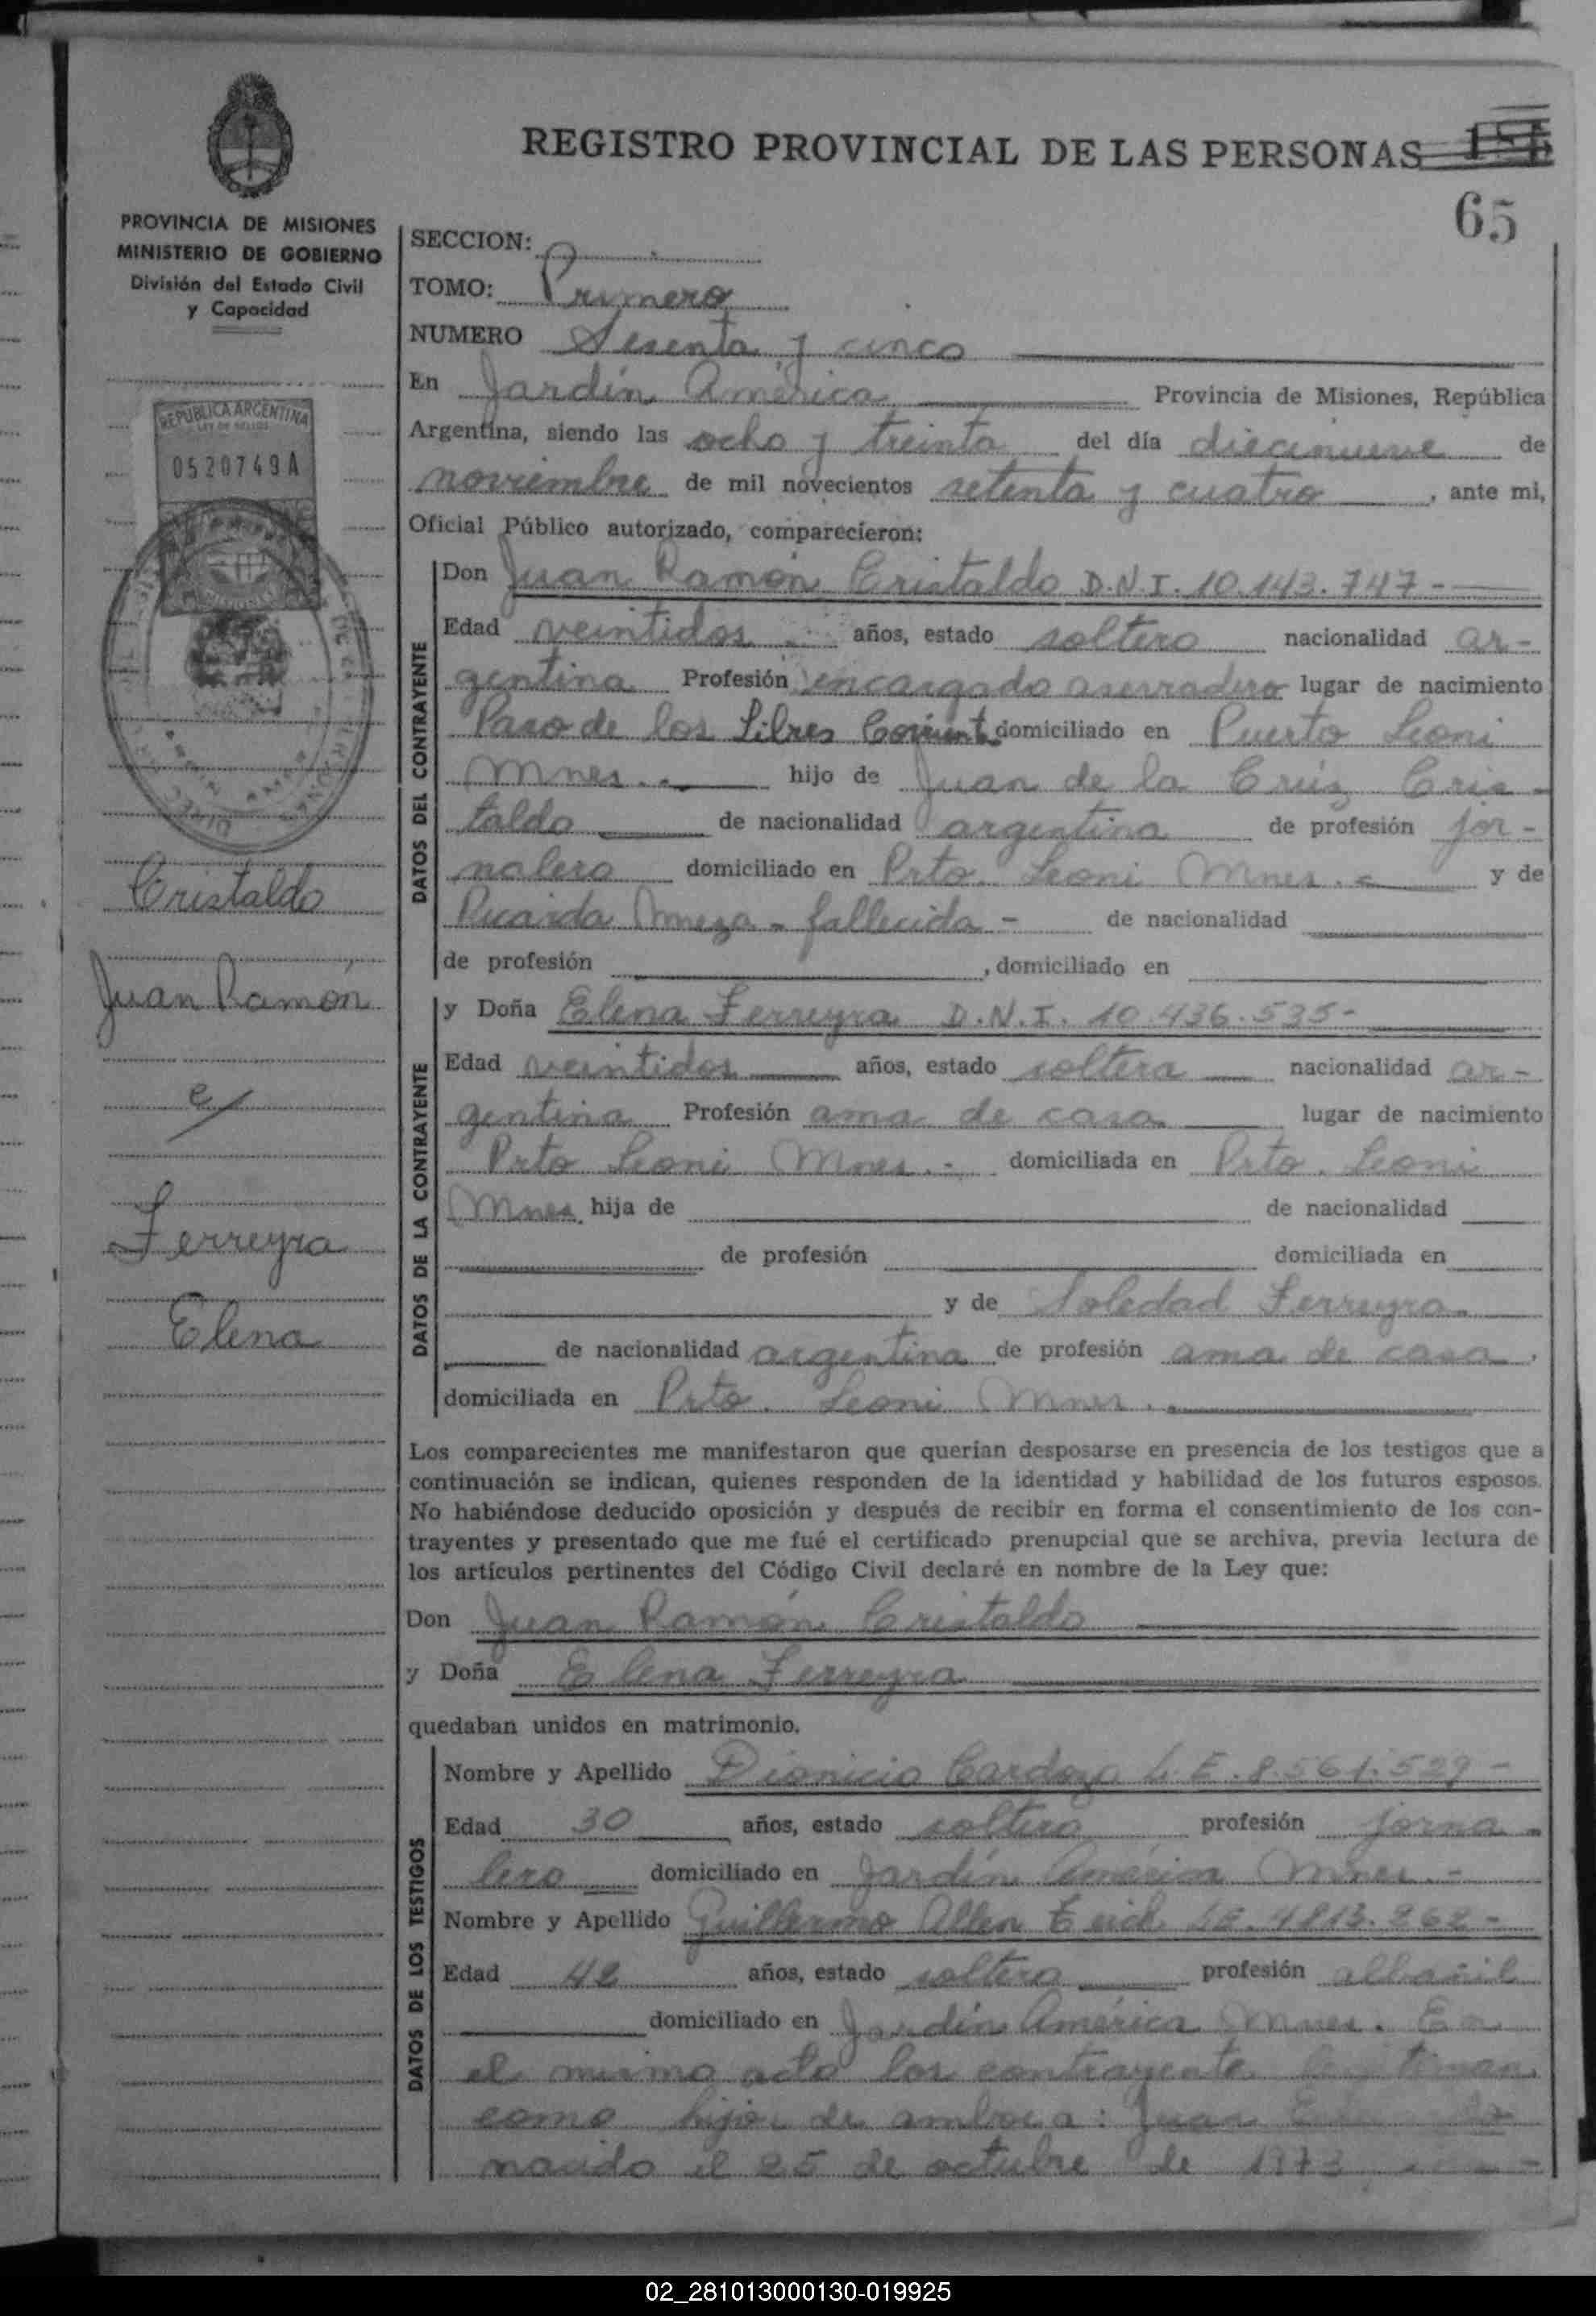 REGISTRO PROVINCIAL DE LAS PERSONAS
65
PROVINCIA DE MISIONES
MINISTERIO DE GOBIERNO
División del Estado Civil
y Capacidad
REPUBLICA ARGENTINA
LEY DE SELLOS
0520749A
Cristaldo
Juan Ramón
c/
Ferreyra
Elena
SECCION:
TOMO: Primero
NUMERO Sesenta y cinco
En Jardín América Provincia de Misiones, República
Argentina, siendo las ocho y treinta del día diecinueve de
noviembre de mil novecientos setenta y cuatro, ante mi,
Oficial Público autorizado, comparecieron:
DATOS DEL CONTRAYENTE
Don Juan Ramón Cristaldo D.N.I. 10.143.747-
Edad veintidos años, estado soltero nacionalidad ar-
gentina Profesión encargado aserradero lugar de nacimiento
Paso de los Libres Corrient domiciliado en Puerto Leoni
Mnes.- hijo de Juan de la Crúz Cris-
taldo de nacionalidad argentina de profesión jor-
nalero domiciliado en Prto. Leoni Mnes. y de
Ricarda Meza - fallecida - de nacionalidad
de profesión , domiciliado en
DATOS DE LA CONTRAYENTE
y Doña Elena Ferreyra D.N.I. 10.436.535-
Edad veintidos años, estado soltera nacionalidad ar-
gentina Profesión ama de casa lugar de nacimiento
Prto Leoni Mnes.- domiciliada en Prto. Leoni
Mnes. hija de de nacionalidad
de profesión domiciliada en
y de Soledad Ferreyra
de nacionalidad argentina de profesión ama de casa,
domiciliada en Prto. Leoni Mnes.
Los comparecientes me manifestaron que querían desposarse en presencia de los testigos que a
continuación se indican, quienes responden de la identidad y habilidad de los futuros esposos.
No habiéndose deducido oposición y después de recibir en forma el consentimiento de los con-
trayentes y presentado que me fué el certificado prenupcial que se archiva, previa lectura de
los artículos pertinentes del Código Civil declaré en nombre de la Ley que:
Don Juan Ramón Cristaldo
y Doña Elena Ferreyra
quedaban unidos en matrimonio.
DATOS DE LOS TESTIGOS
Nombre y Apellido Dionicio Cardozo L.E. 8.561.529-
Edad 30 años, estado soltero profesión jorna-
lero domiciliado en Jardín América Mnes.-
Nombre y Apellido Guillermo Allen LE.
Edad 42 años, estado soltero profesión albañil
domiciliado en Jardín América Mnes. En
el mismo acto los contrayente legitiman
como hijo de ambos a: Juan
nacido el 25 de octubre de 1973
02_281013000130-019925